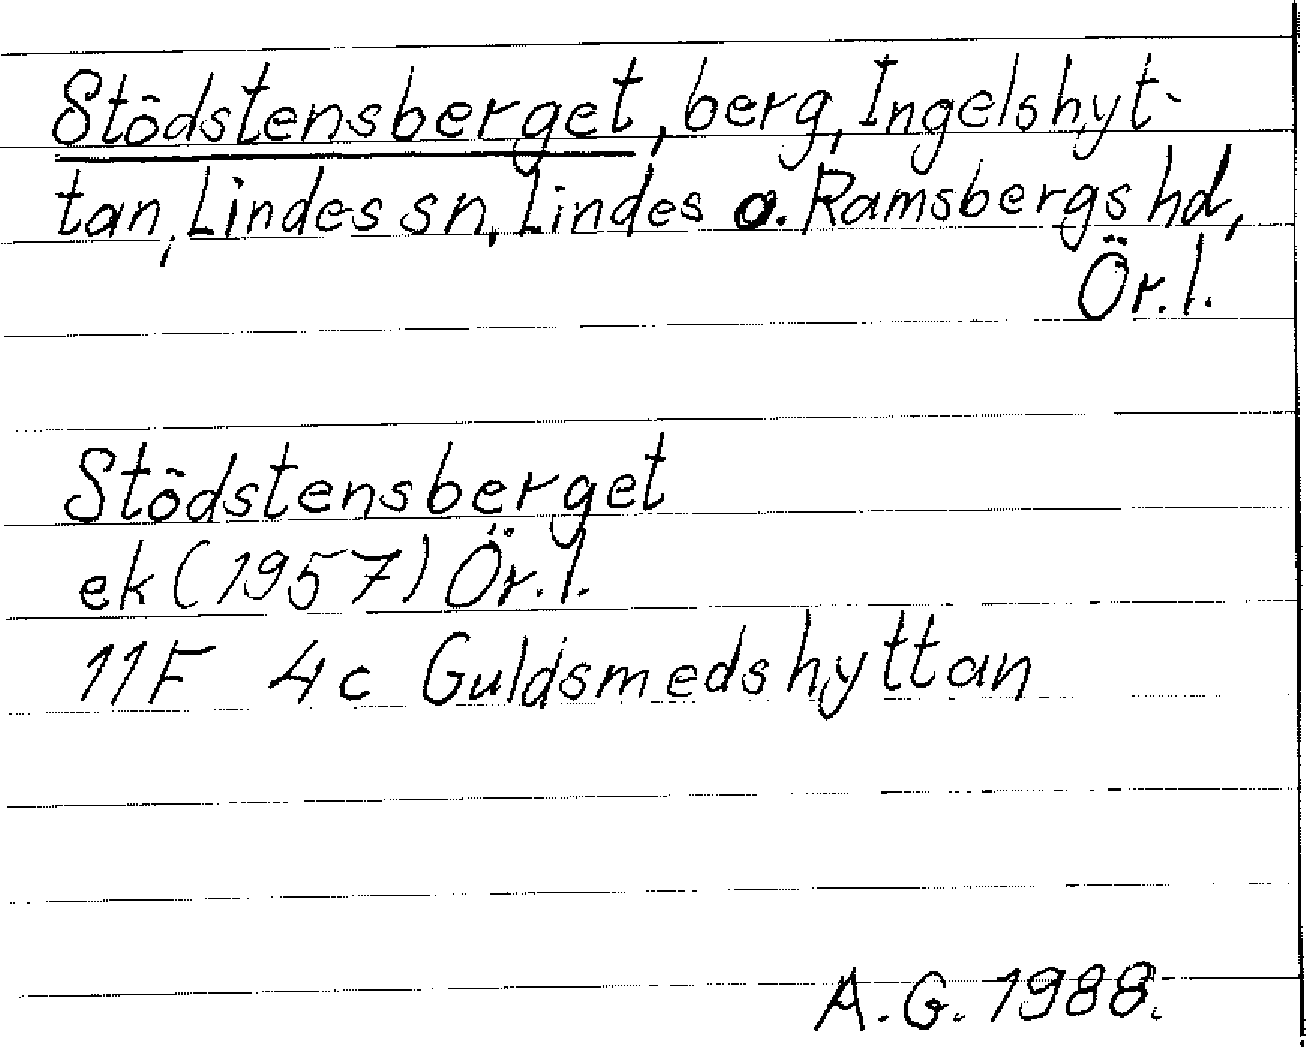 Stödstensberget, berg, Ingelshyt-
tan, Lindes sn, Lindes o. Ramsbergs hd,
Ör. l.
Stödstensberget
ek (1957) Ör. l.
11F 4c Guldsmedshyttan
A.G. 1988.